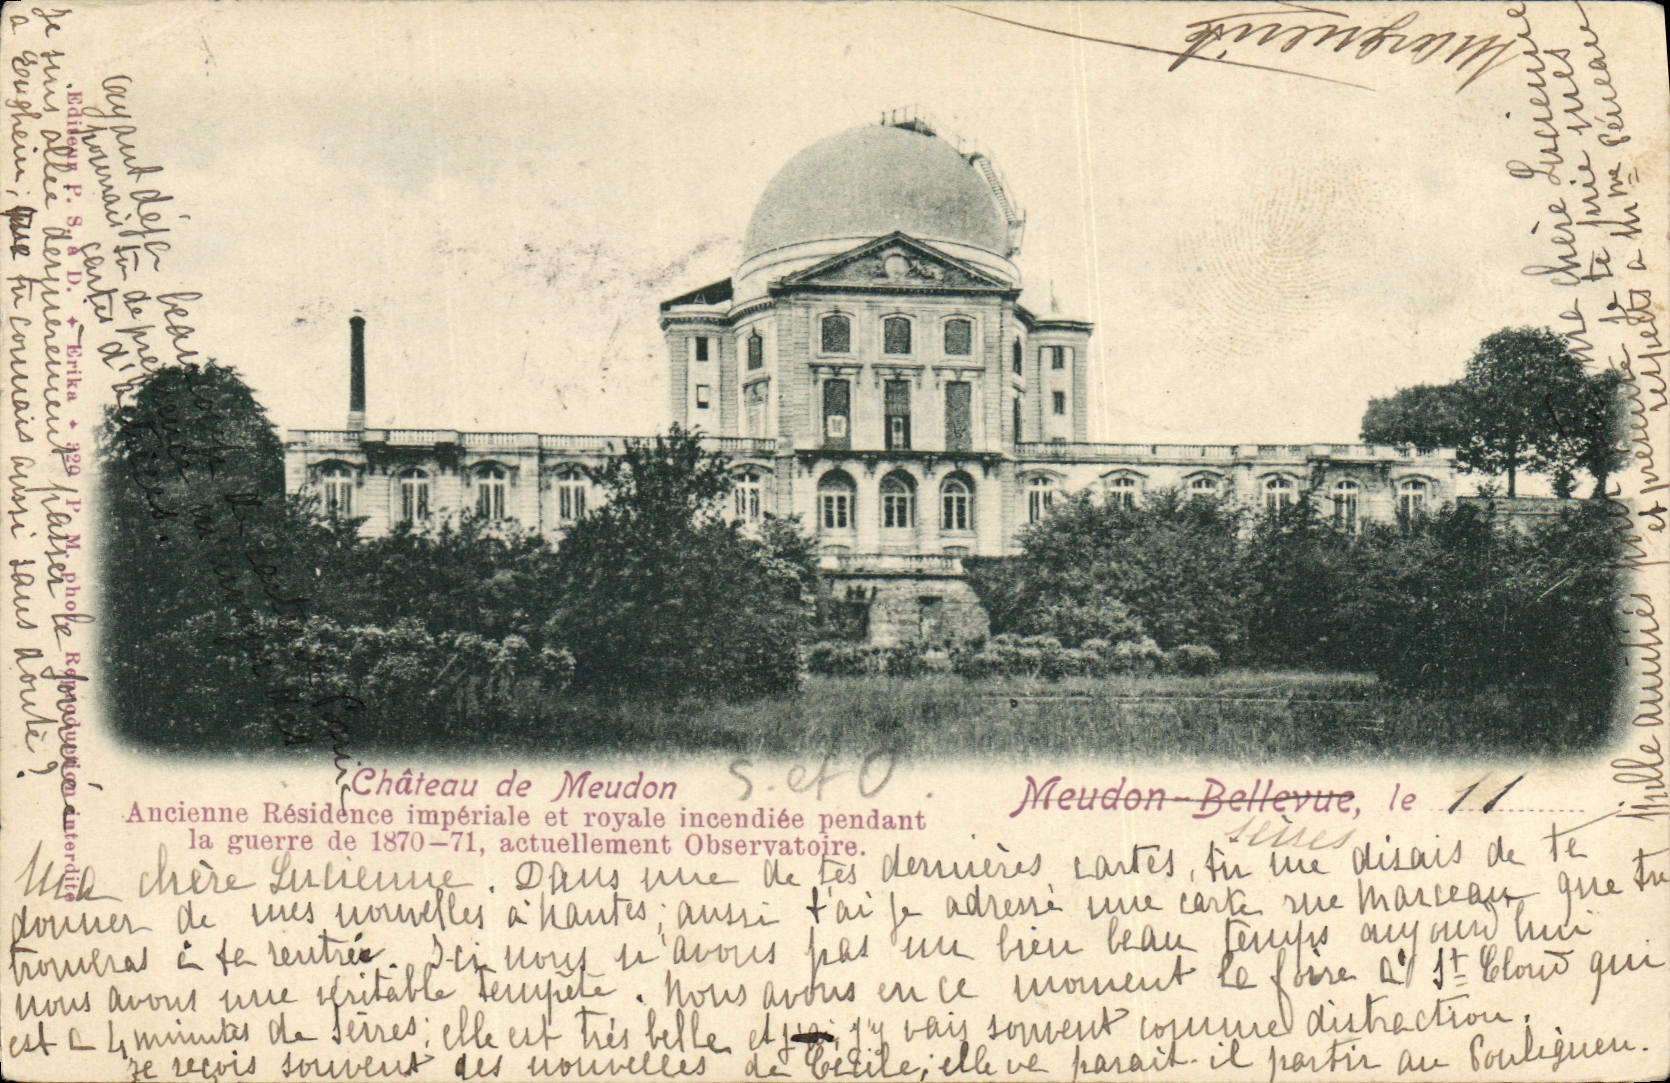 Château de Meudon
Ancienne Résidence impériale et royale incendiée pendant
la guerre de 1870–71, actuellement Observatoire.
S. et O.
Meudon–Bellevue, le 11
Sèvres
Editeur P. S. à D. ✦ Erika ✦ 329 P. M. phot. Reproduction interdite
Ma chère Lucienne. Dans une de tes dernières cartes, tu me disais de te
donner de mes nouvelles à Nantes; aussi t'ai je adressé une carte rue Marceau que tu
trouveras à ta rentrée. Ici nous n'avons pas un bien beau temps aujourd'hui
nous avons une véritable tempête. Nous avons en ce moment la foire à St Cloud qui
est à 4 minutes de Sèvres; elle est très belle et j'y vais souvent comme distraction.
Je reçois souvent des nouvelles de Cécile; elle va parait-il partir au Pouliguen.
Je suis allée dernièrement passer la journée
a Enghein, que tu connais aussi sans doute?
ayant déjà beaucoup de cartes Paris
pourrais tu de préférence m'envoyer des
cartes d'
Mille amitiés pour ma chère Lucienne
je te prie mes
et présente
respects a Mme Péneau
Marguerite